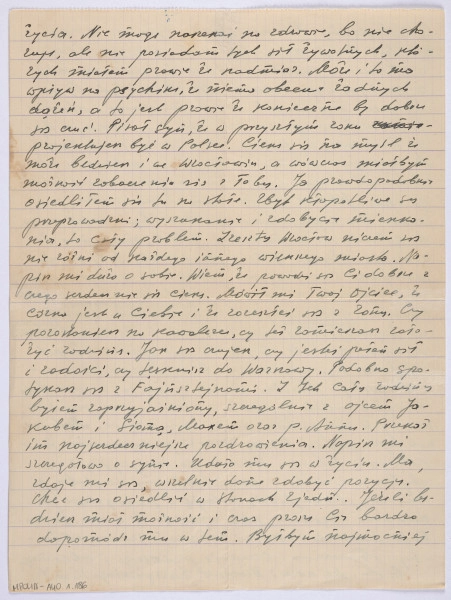 życia. Nie mogę narzekać na zdrowie, bo nie cho-
ruję, ale nie posiadam tych sił żywotnych, któ-
rych miałem prawie że nadmiar. Może i to ma
wpływ na psychikę, że niema obecnie żadnych
dążeń, a to jest prawie że konieczne by dobrze
się czuć. Pisał, że w przyszłym roku
projektujesz być w Polsce. Cieszę się na myśl że
może będziesz i we Wrocławiu, a wówczas miałbym
możność zobaczenia się z Tobą. Ja prawdopodobnie
osiedliłem się tu na stałe. Zbyt kłopotliwe są
przeprowadzki; wyszukanie i zdobycie mieszka-
nia, to cały problem. Zresztą Wrocław niczem się
nie różni od każdego innego większego miasta. Na-
pisz mi dużo o sobie. Wiem, że powodzi się Ci dobrze z
czego serdecznie się cieszę. Mówił mi Twój ojciec, że
córka jest u Ciebie i że rozeszłeś się z żoną. Czy
pozostaniesz na kawalerce, czy też zamierzasz zało-
żyć rodzinę. Jak się czujesz, czy jesteś pełen sił
i radości, czy tęsknisz do Warszawy. Podobno spo-
tykasz się z Fajnsztejnami. Z tą całą rodziną
byłem zaprzyjaźniony, szczególnie z ojcem Ja-
kubem i Siomą, Maxem oraz p. Anną. Przekaż
im najserdeczniejsze pozdrowienia. Napisz mi
szczegółowo o synie. Udało mu się w życiu. Ma,
zdaje mi się, wszelkie dane zdobyć pozycję.
Chce się osiedlić w Stanach Zjedn. Jeżeli bę-
dziesz miał możność i czas proszę Cię bardzo
dopomóż mu w tem. Byłbym najmocniej
MPOLIN-A40.1.186